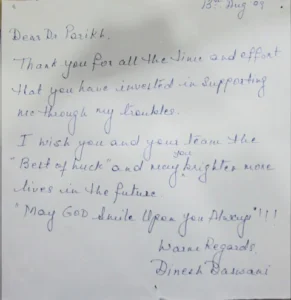 13th Aug 09
Dear Dr Parikh,
Thank you for all the time and effort
that you have invested in supporting
me through my troubles.
I wish you and your team the
"Best of luck" and may you brighten more
lives in the future
"May GOD Smile Upon You Always"!!!
Warm Regards
Dinesh Daswani